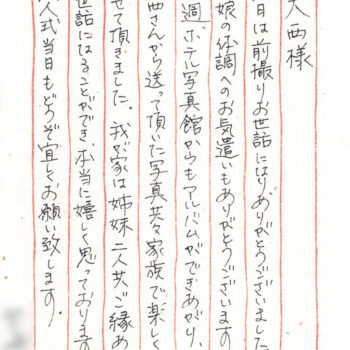 大西様
日は前撮りお世話になりありがとうございました
娘の体調へのお気遣いもありがとうございます
週ホテル写真館からもアルバムができあがり、
西さんから送って頂いた写真共々家族で楽しく
せて頂きました。我が家は姉妹二人共ご縁あ
世話になることができ、本当に嬉しく思っております
人式当日もどうぞ宜しくお願い致します。